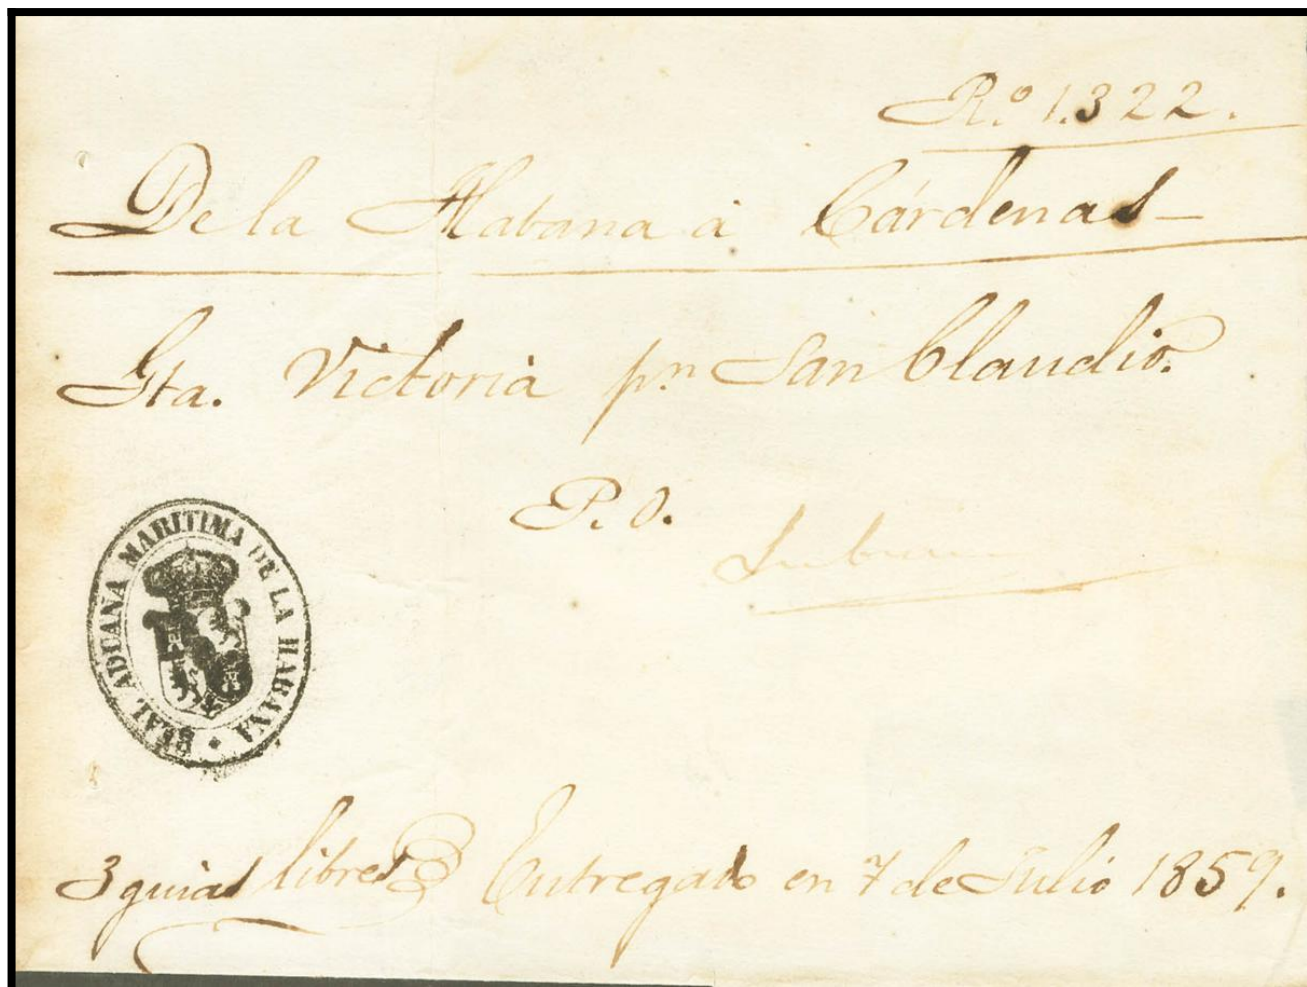 R.º 1.322.
De la Habana à Cárdenas-
Gta. Victoria p.n San Claudio.
P. O.
REAL ADUANA MARITIMA DE LA HABANA
3 guias libres Entregado en 7 de Julio 1859.